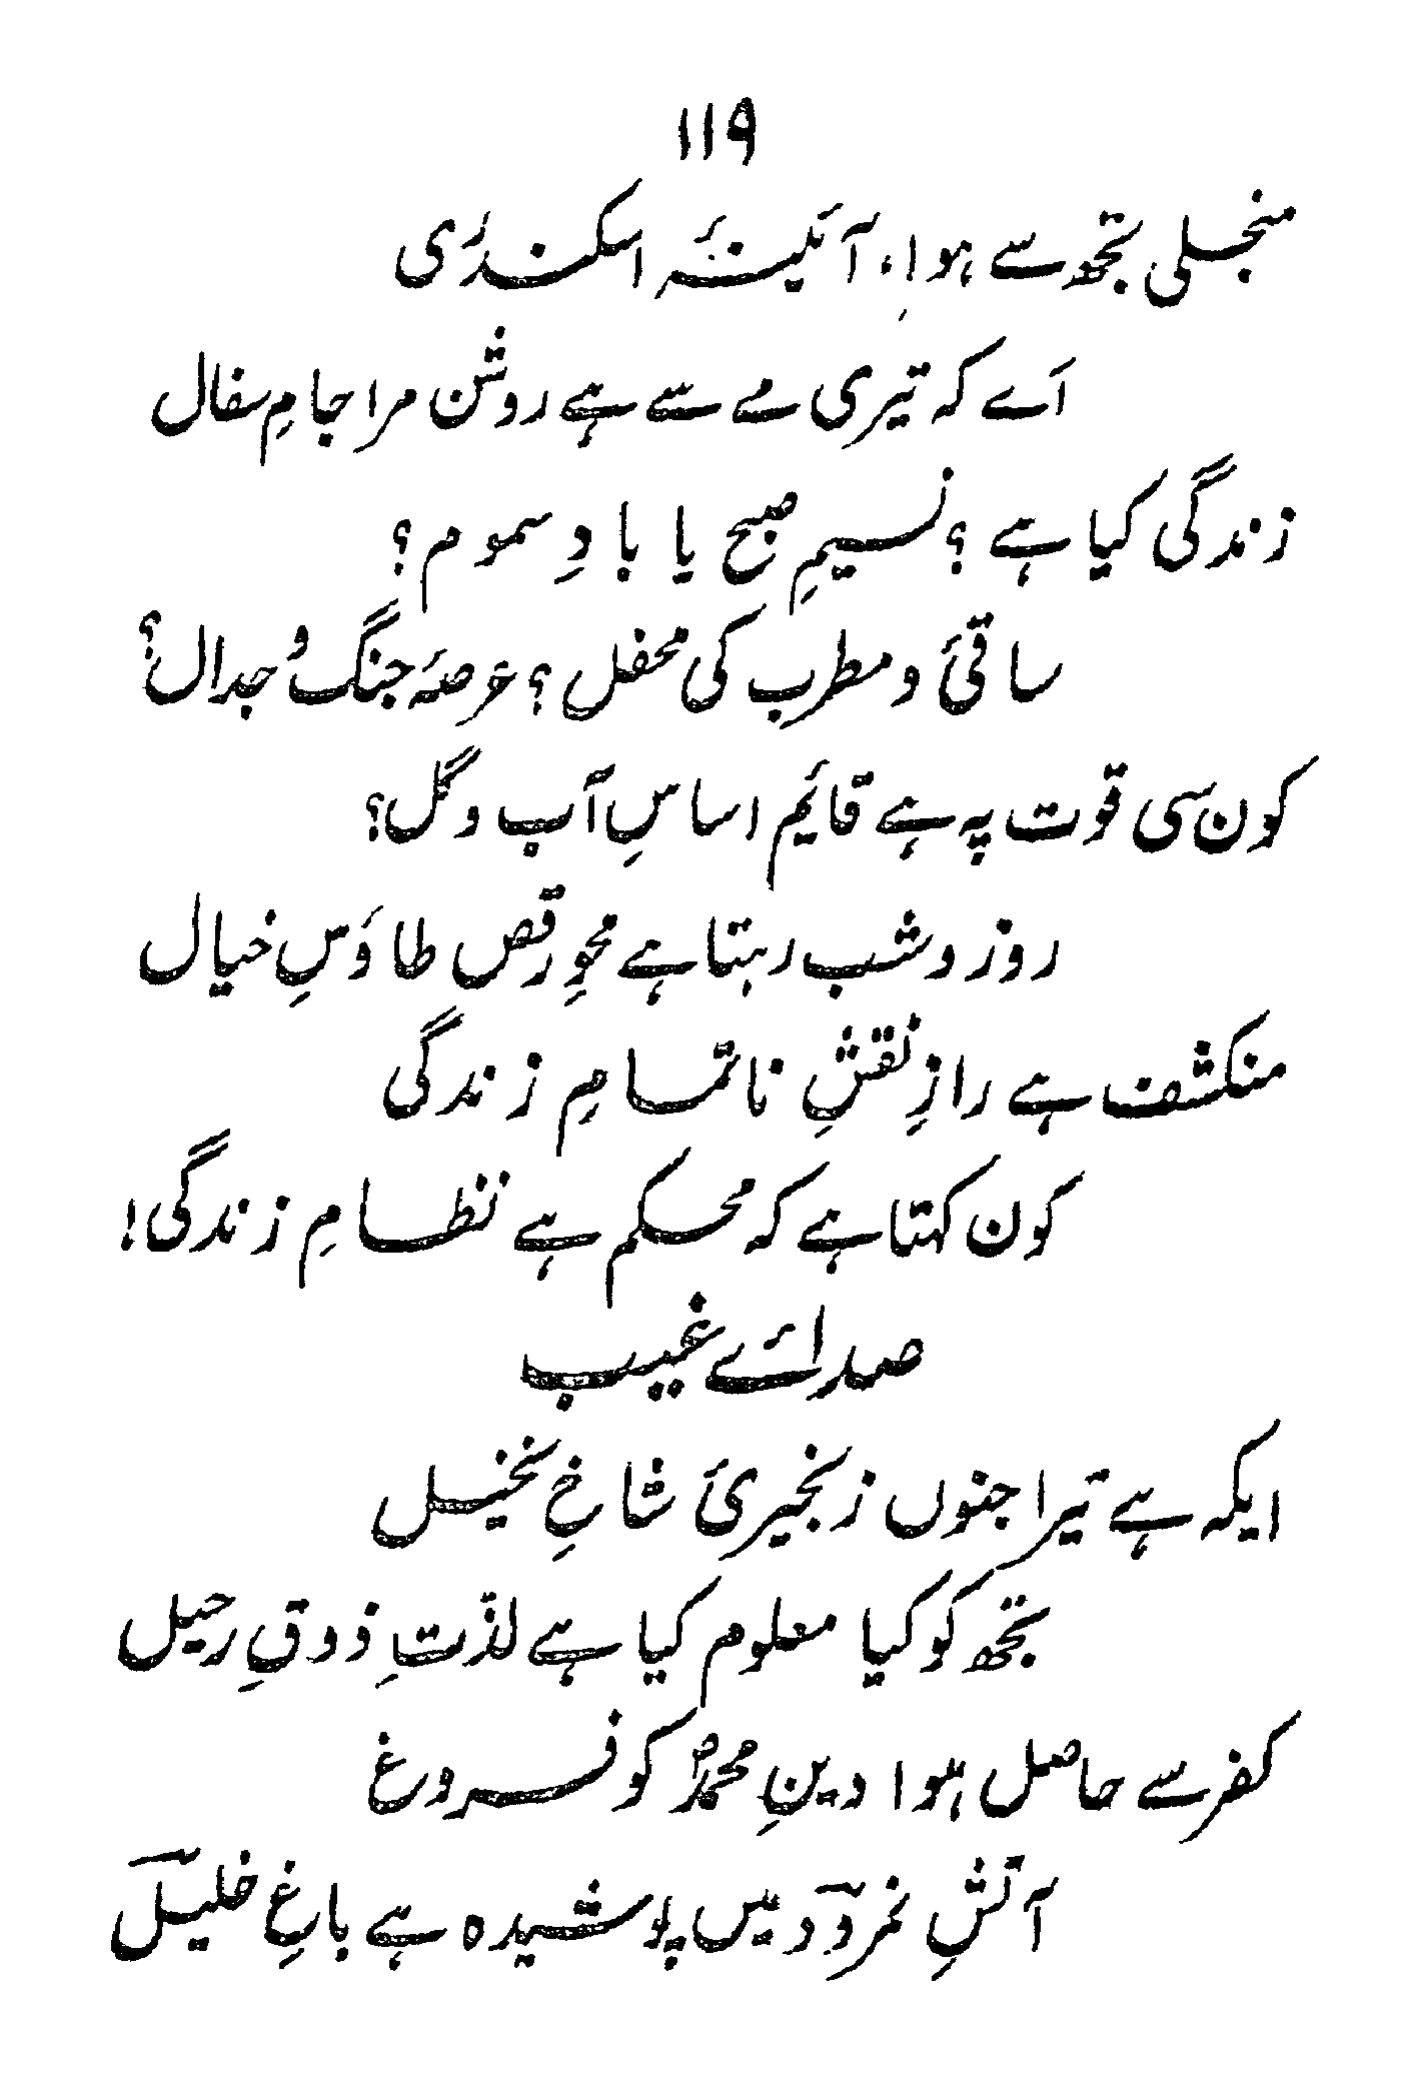 ۱۱۹
منجلی تجھ سے ہوا، آئینۂ اسکندری
اَے کہ تیری مے سے ہے روشن مرا جامِ سفال
زندگی کیا ہے ؟ نسیمِ صبح یا بادِ سموم ؟
ساقیٔ و مطرب کی محفل ؟ عرصۂ جنگ وُ جدال ؟
کون سی قوت پہ ہے قائیم اساسِ آب و گل؟
روز و شب رہتا ہے محوِ رقص طاؤسِ خیال
منکشف ہے رازِ نقشِ ناتمامِ زندگی
کون کہتا ہے کہ محکم ہے نظامِ زندگی!
صدائے غیب
ایکہ ہے تیرا جنوں زنجیریٔ شاخِ نخیل
تجھ کو کیا معلوم کیا ہے لذّتِ ذوقِ رحیل
کفر سے حاصل ہوا دینِ محمدؐ کو فروغ
آتشِ نمرود میں پوشیدہ ہے باغِ خلیل